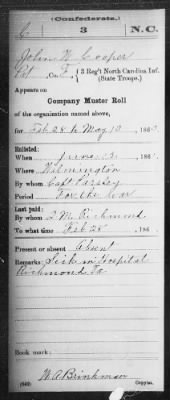 (Confederate.)
C 3 N.C.
John W Cooper
Pvt, Co. E, 3 Reg't North Carolina Inf.
(State Troops.)
Appears on
Company Muster Roll
of the organization named above,
for Feb 28 to May 10, 186
Enlisted:
When June 13, 186
Where Wilmington
By whom Capt Parsley
Period For the War
Last paid:
By whom Richmond
To what time Feb 28, 186
Present or absent Absent
Remarks: Sick in Hospital
Richmond Va
Book mark:
W. A. Brinkman
(642) Copyist.